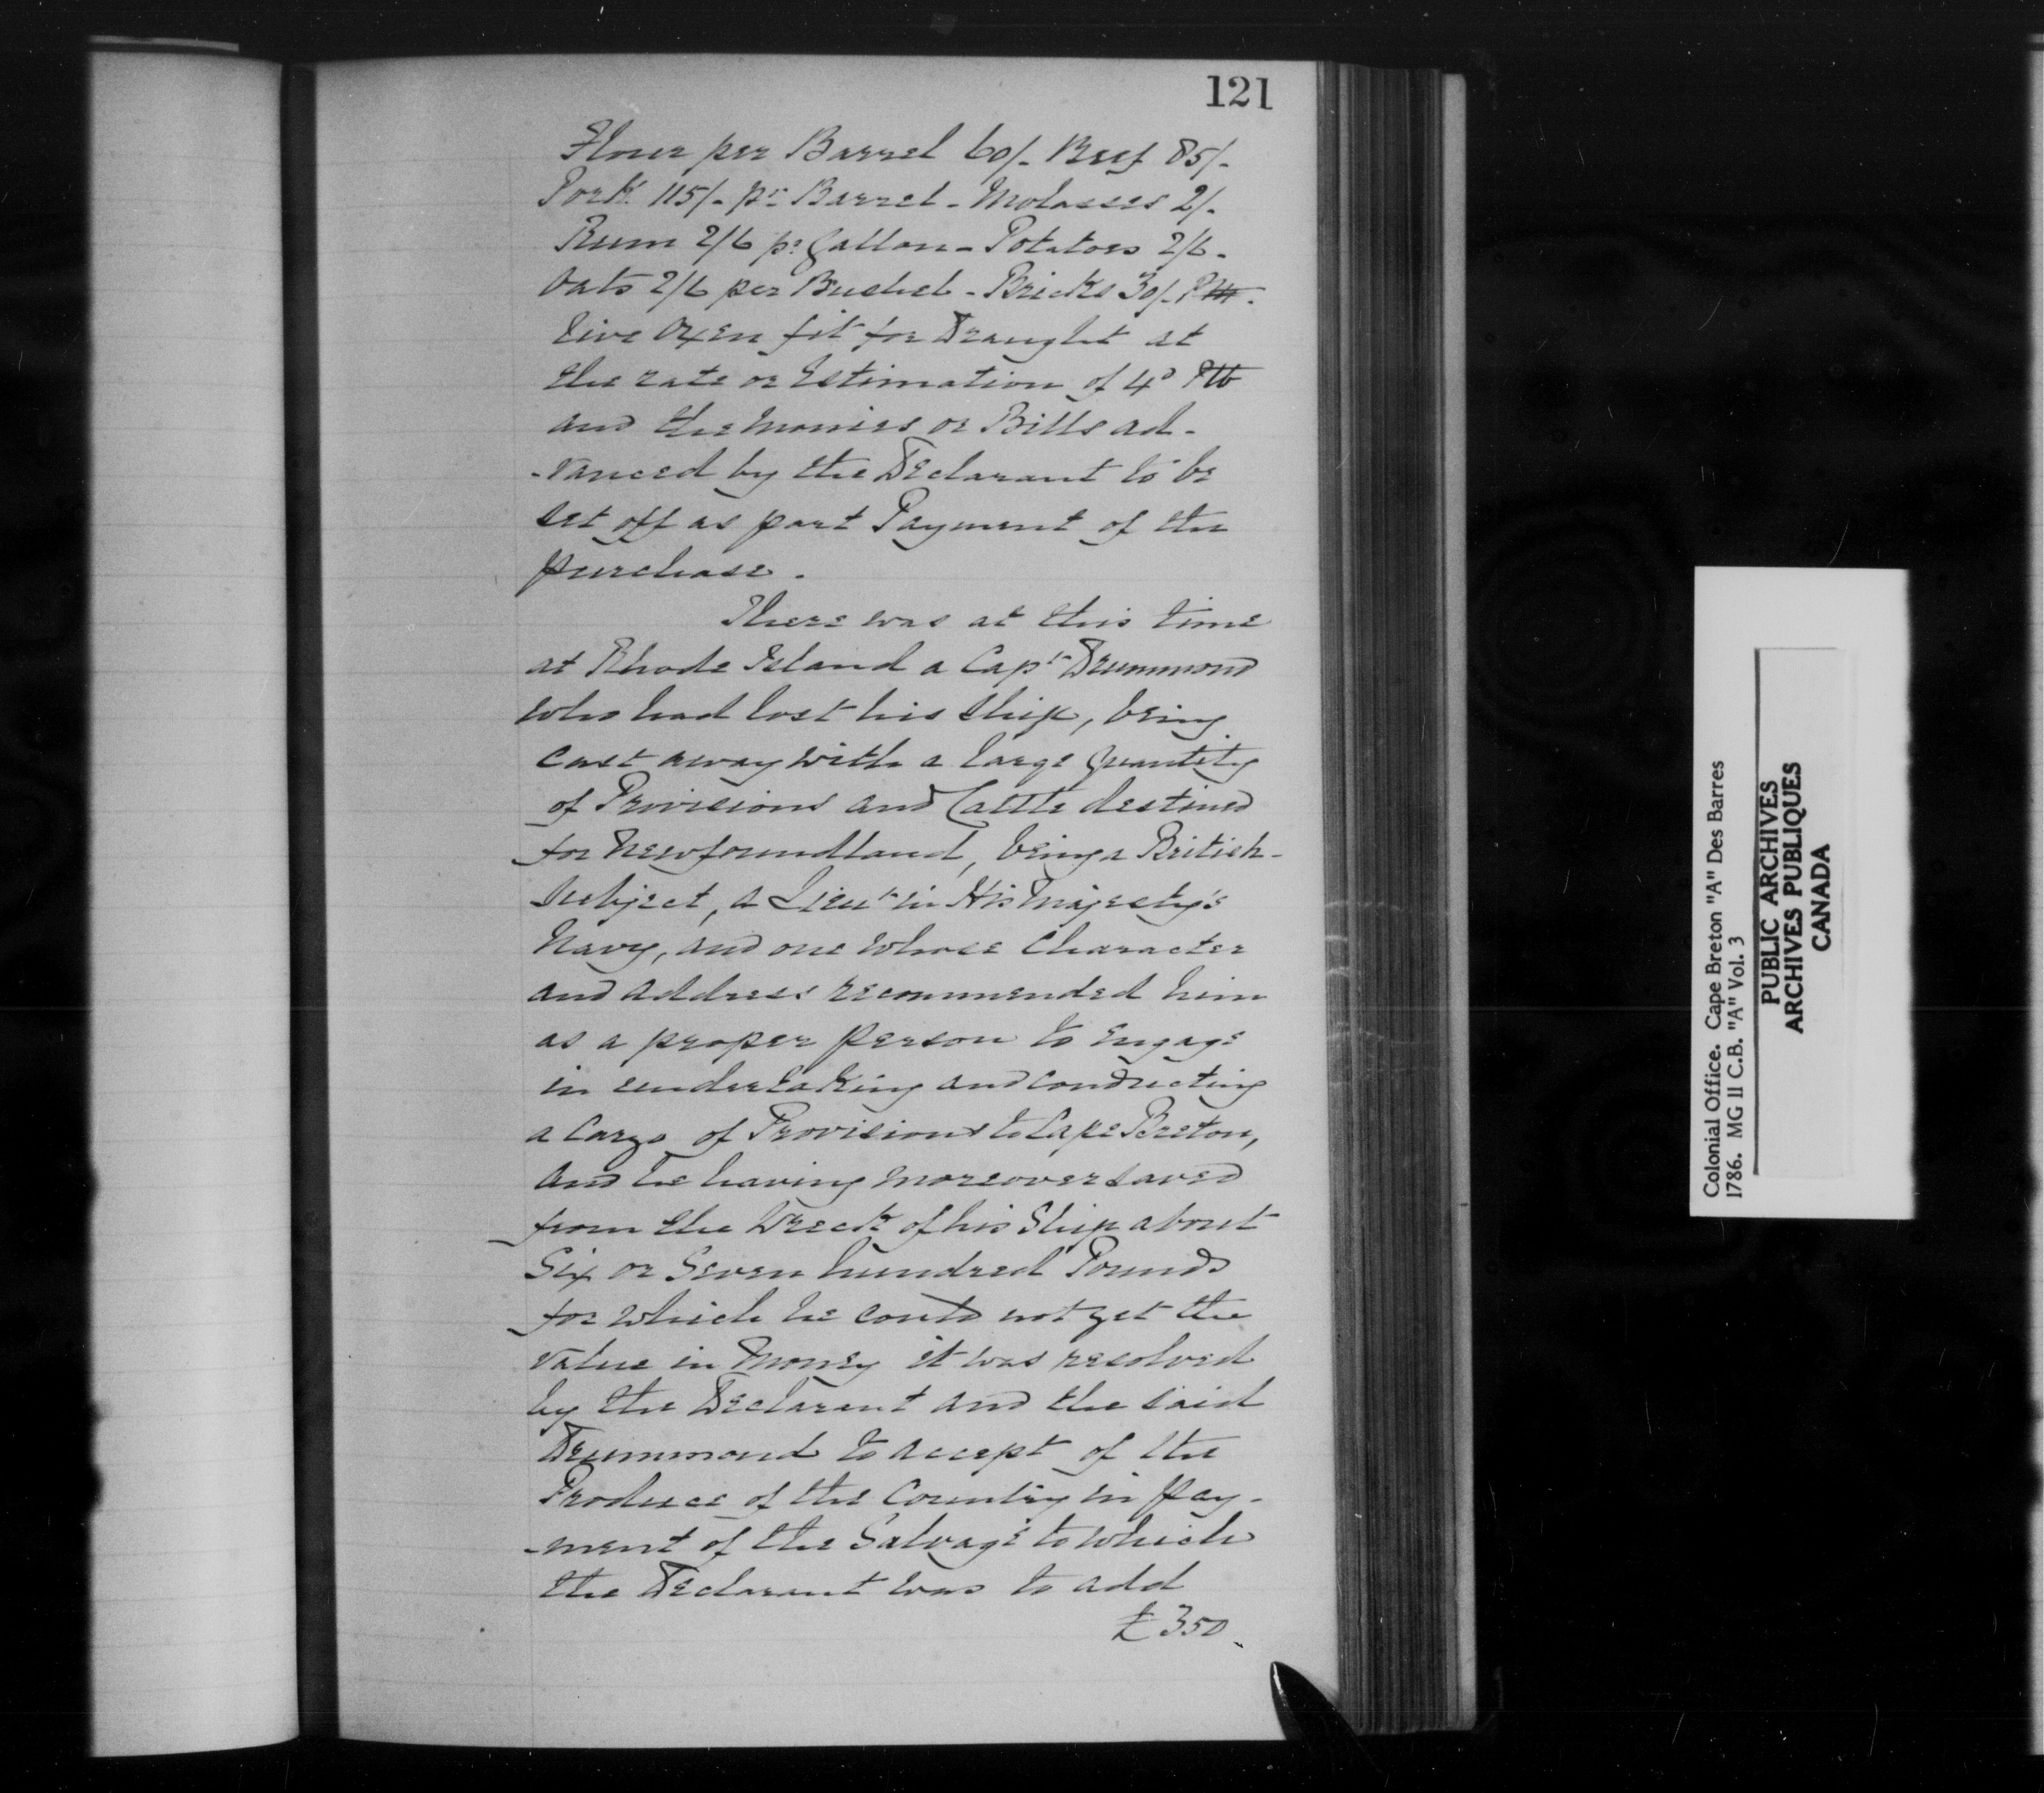 121
Flour per Barrel 60/- Beef 85/-
Pork 115/- pr Barrel - Molasses 2/-
Rum 2/6 pr Gallon - Potatoes 2/6 -
Oats 2/6 per Bushel - Bricks 30/- P M.
live Oxen fit for Draught at
the rate or Estimation of 4d P lb
and the monies or Bills ad-
-vanced by the Declarant to be
set off as part Payment of the
purchase.
There was at this time
at Rhode Island a Capt Drummond
who had lost his Ship, being
cast away with a large quantity
of Provisions and Cattle destined
for Newfoundland, being a British-
Subject, a Lieut in His Majesty's
Navy, and one whose Character
and address recommended him
as a proper person to Engage
in undertaking and conducting
a Cargo of Provisions to Cape Breton,
and he having moreover saved
from the Wreck of his Ship about
Six or Seven hundred Pounds
for which he could not get the
value in Money it was resolved
by the Declarant and the said
Drummond to accept of the
Produce of the Country in pay-
-ment of the Salvage to which
the Declarant was to add
£350
Colonial Office. Cape Breton "A" Des Barres
1786. MG II C.B. "A" Vol. 3
PUBLIC ARCHIVES
ARCHIVES PUBLIQUES
CANADA